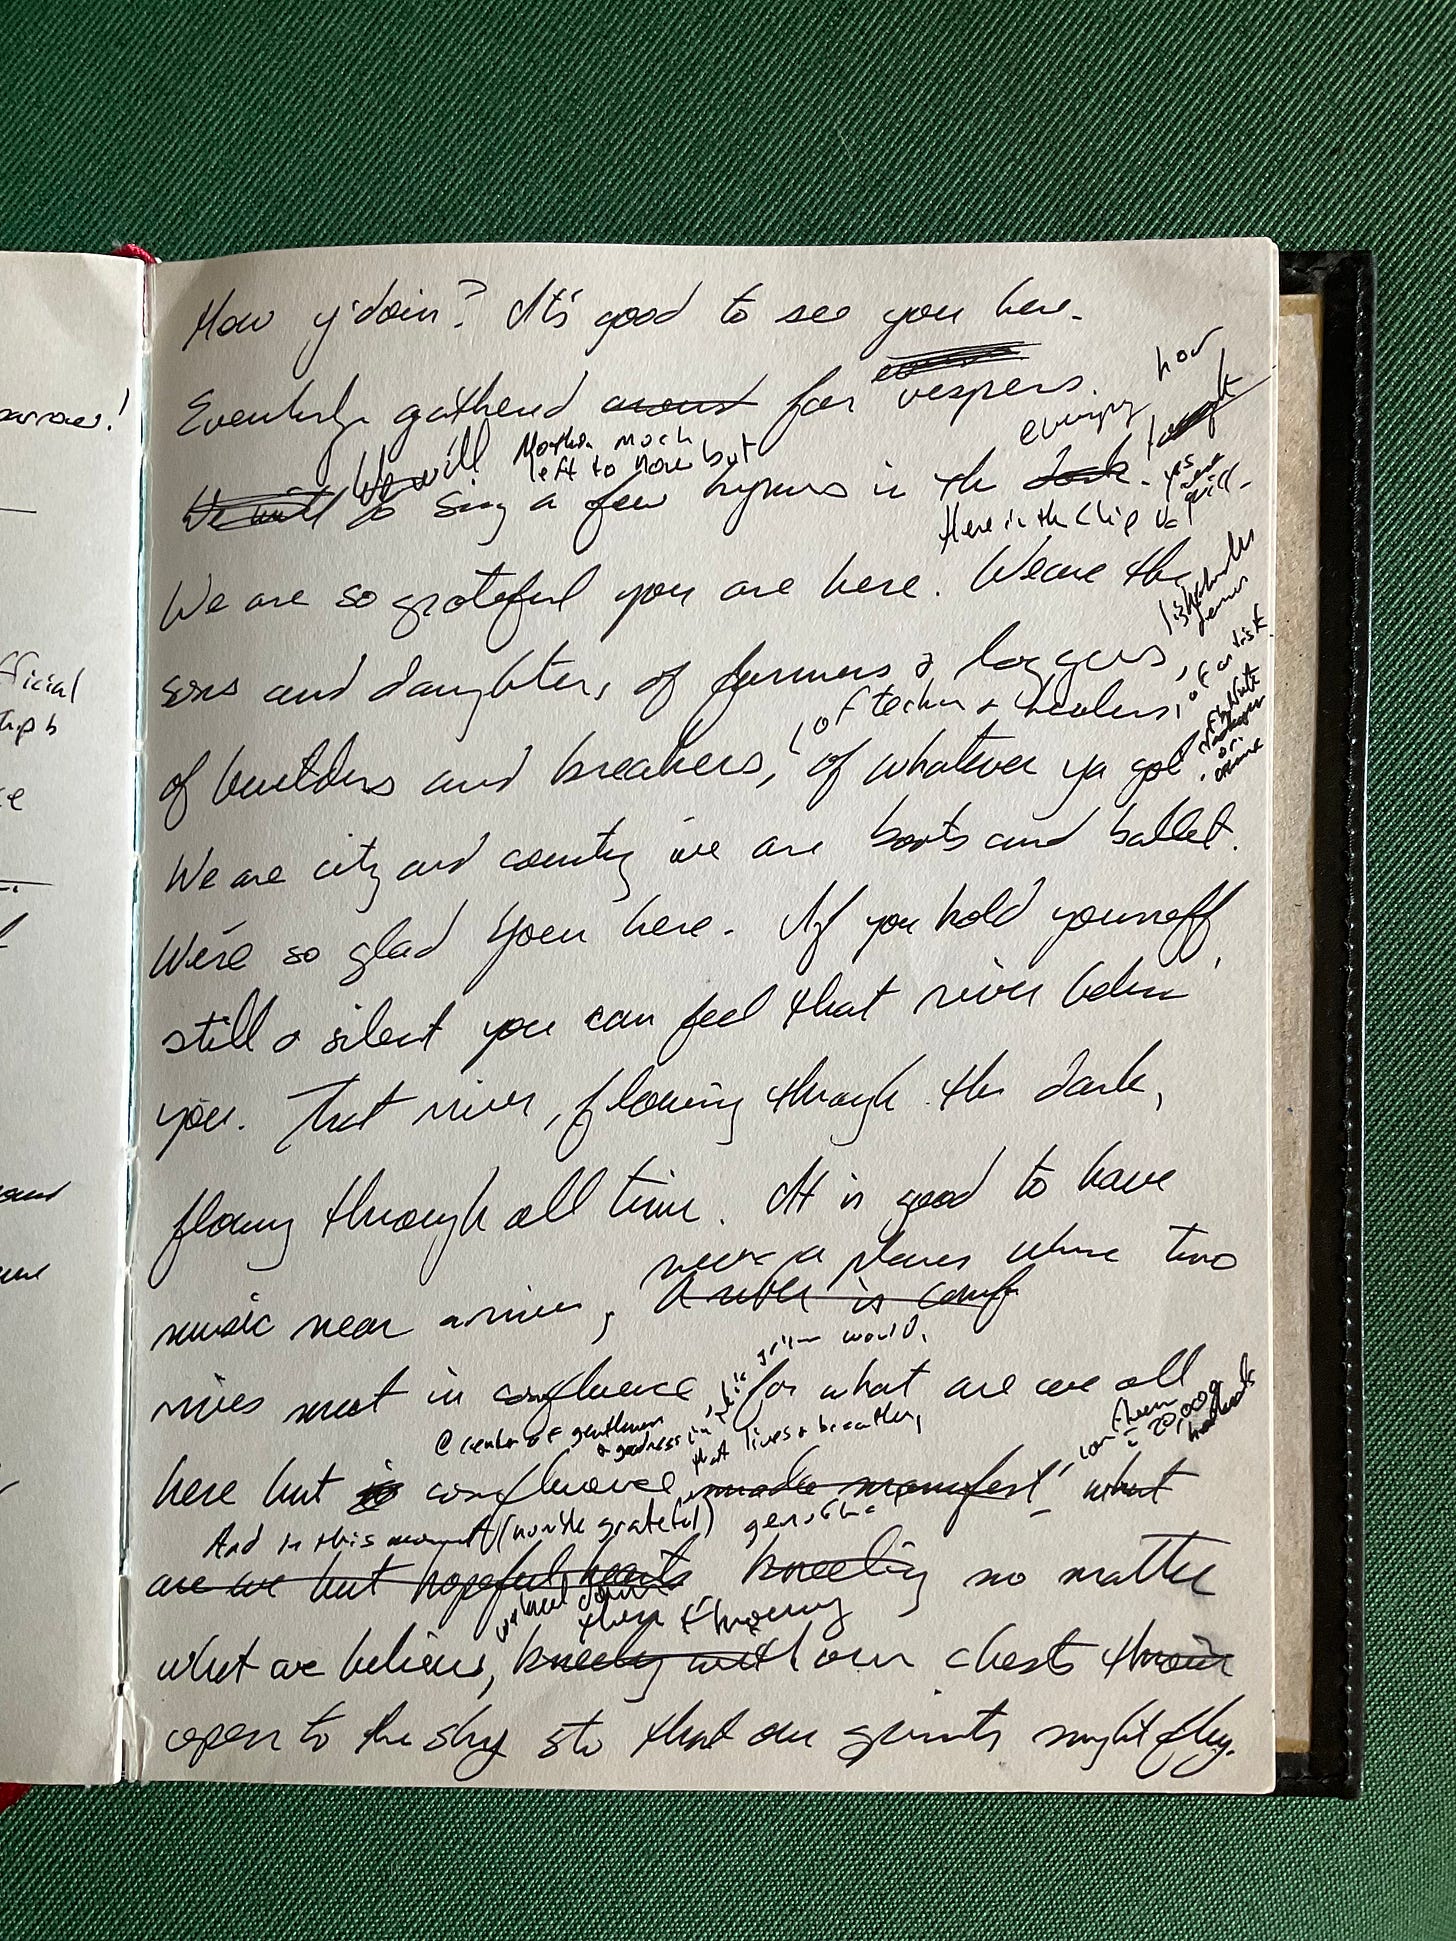 arrow!
fficial
How y'doin? It's good to see you here.
Evenly gathered around for vespers.
how
We will We will
left to now but
evening
sing a few hymns in the dark.
Here in the Chip
We are so grateful you are here. We are the
sons and daughters of farmers & loggers,
of teachers & healers, of artists
of builders and breakers, of whatever ya got
or
We are city and country we are boots and ballet.
We're so glad you're here. If you hold yourself
still & silent you can feel that river below
you. That river, flowing through the dark,
flowing through all time. It is good to have
near a places where two
music near a river, a river is
rivers meet in confluence, for what are we all
world,
@ center of gentleness
& goodness in
that lives & breathes,
20,000
here but confluence made manifest, what
And in this moment (humble grateful)
are we but hopeful hearts kneeling no matter
kneel down
then throwing
what we believe, kneeling with our chests thrown
open to the sky so that our spirits might fly.